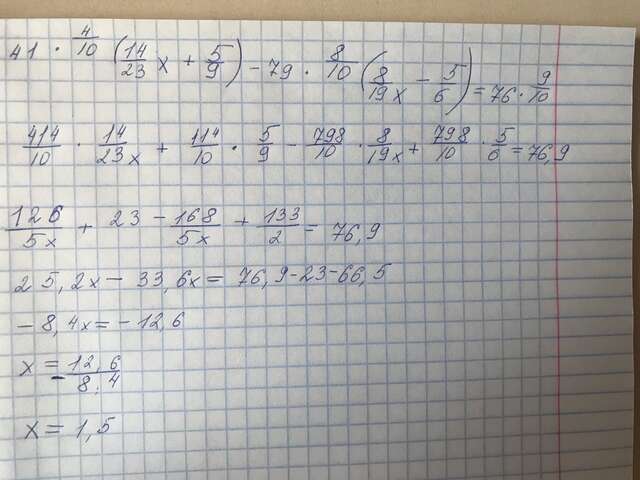 41 · 4/10 (14/23 x + 5/9) - 79 · 8/10 (8/19 x - 5/6) = 76 · 9/10
414/10 · 14/23 x + 114/10 · 5/9 - 798/10 · 8/19 x + 798/10 · 5/6 = 76,9
126/5x + 23 - 168/5x + 133/2 = 76,9
25,2x - 33,6x = 76,9-23-66,5
-8,4x = -12,6
x = -12,6/8,4
x = 1,5